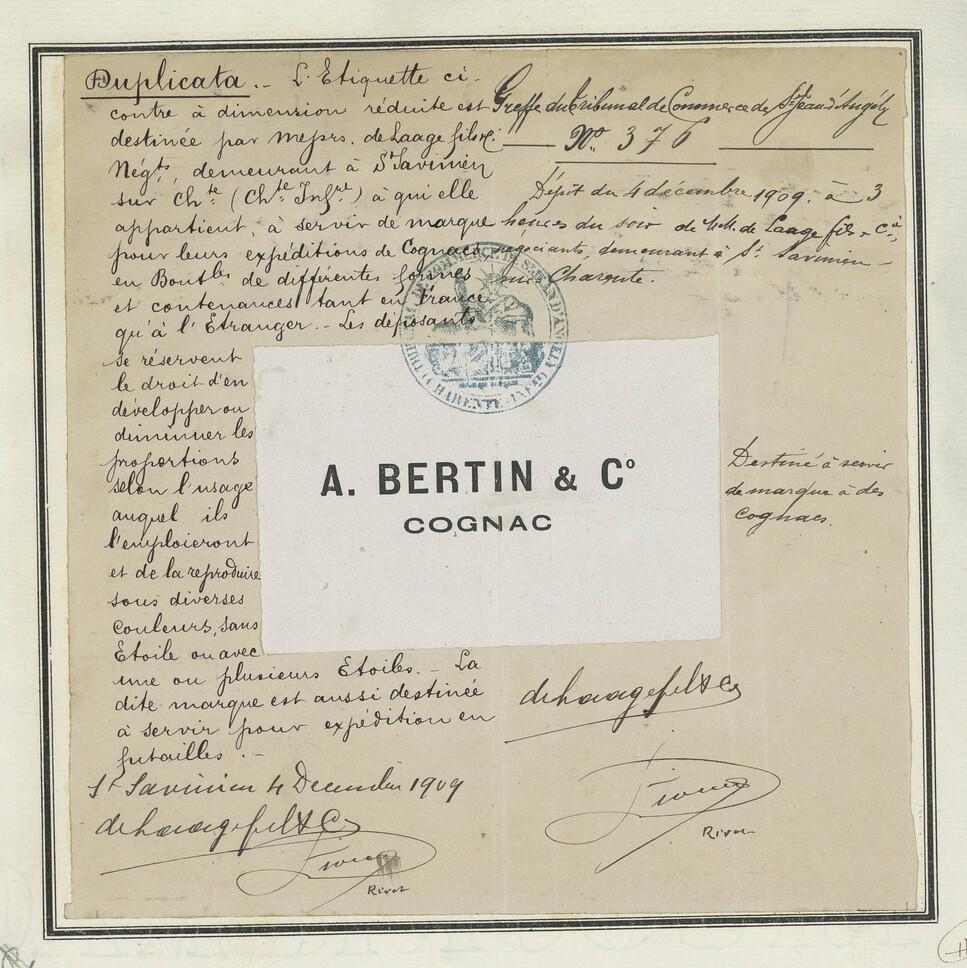 Duplicata. - L'Etiquette ci-
contre à dimension réduite est
destinée par Messrs. de Laage fils & Cie
Négts, demeurant à St Savinien
sur Chte (Chte Infre) à qui elle
appartient, à servir de marque
pour leurs expéditions de Cognacs
en Boutles de différentes formes
et contenances tant en France
qu'à l'Etranger. - Les déposants
se réservent
le droit d'en
développer ou
diminuer les
proportions
selon l'usage
auquel ils
l'emploieront
et de la reproduire
sous diverses
couleurs, sans
Etoile ou avec
une ou plusieurs Etoiles. - La
dite marque est aussi destinée
à servir pour expédition en
futailles. -
St Savinien 4 Décembre 1909
de Laage fils & Co
Rivet
Greffe du Tribunal de Commerce de St Jean d'Angély
No. 376
Dépôt du 4 décembre 1909, à 3
heures du soir de MM. de Laage fils & Cie,
négociants, demeurant à St Savinien
sur Charente.
A. BERTIN & Co
COGNAC
Destiné à servir
de marque à des
cognacs.
de Laage fils & Co
Rivet